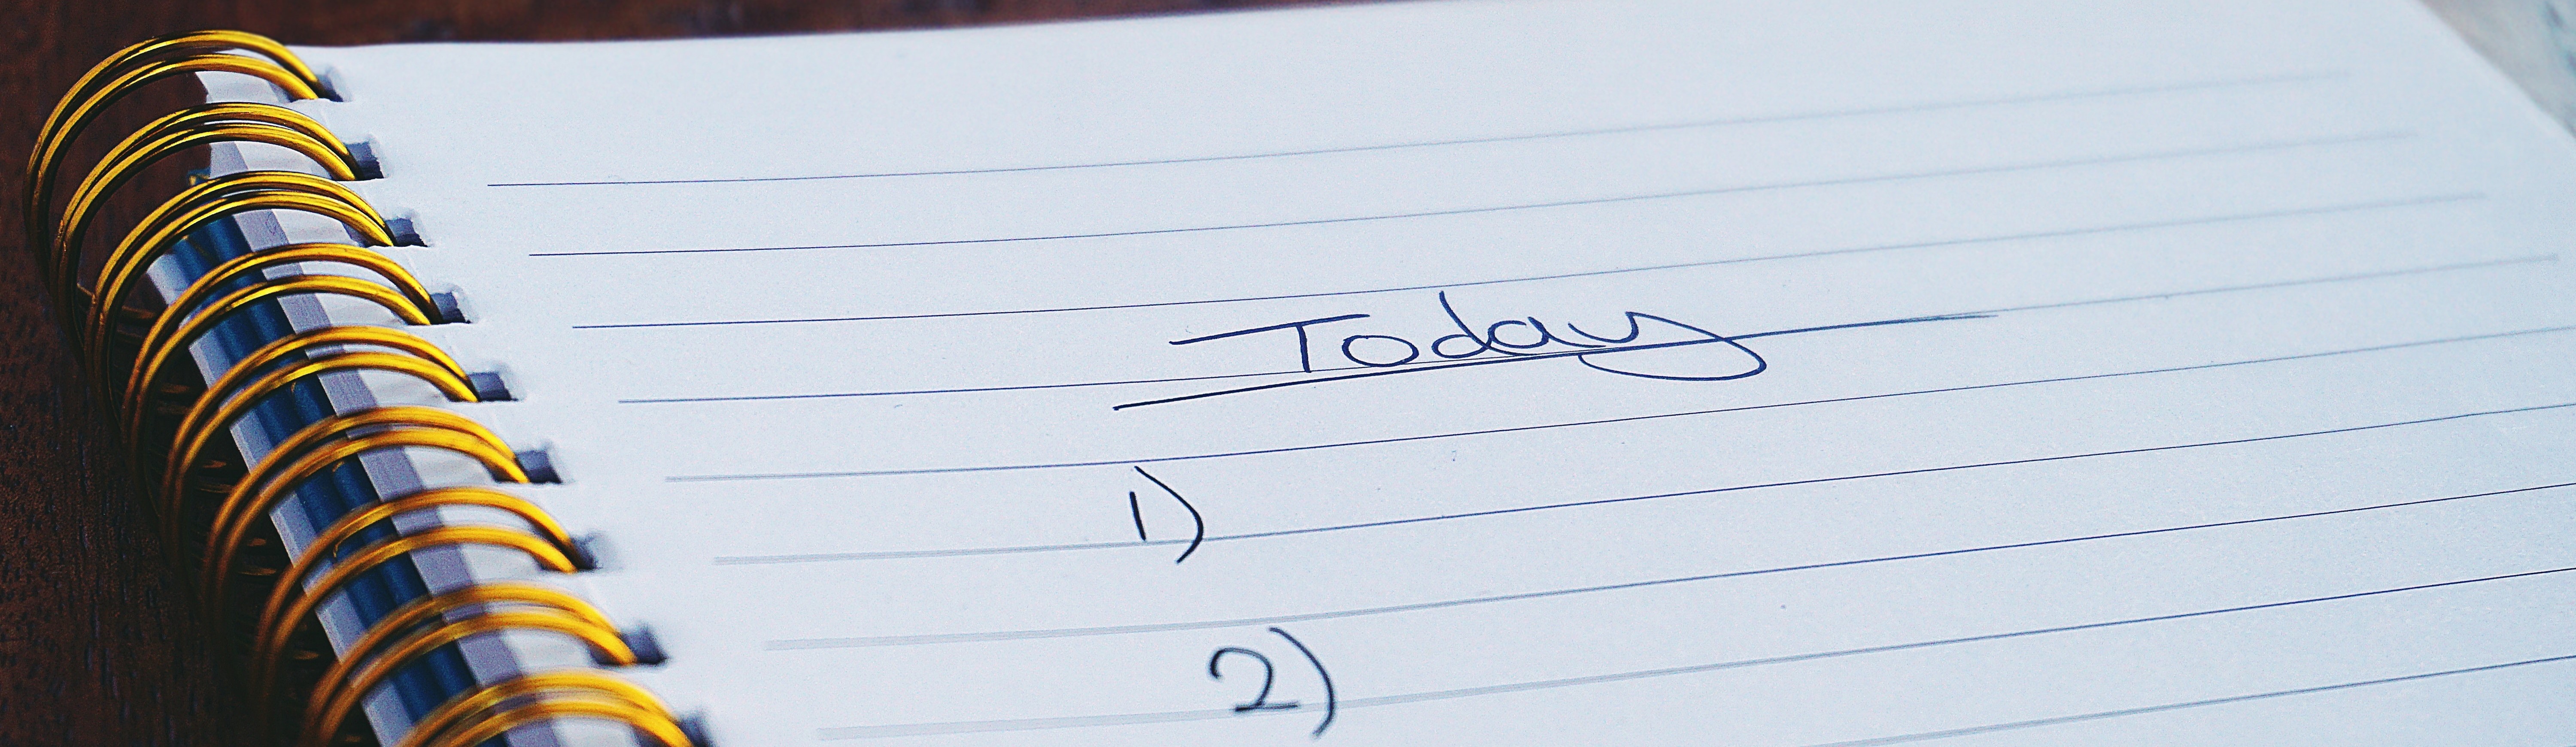 Today
1)
2)